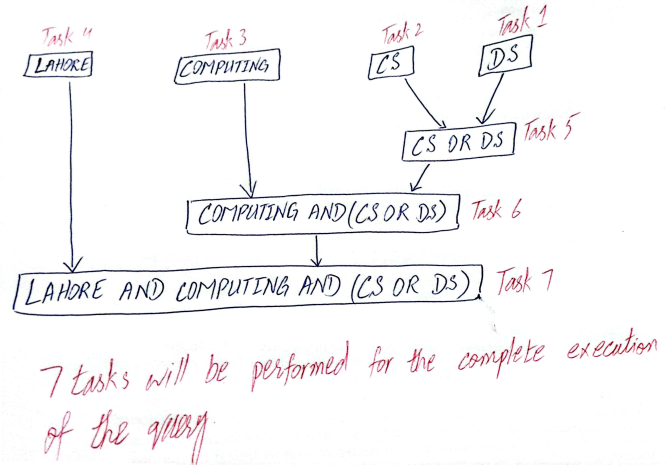 Task 4
Task 3
Task 2
Task 1
LAHORE
COMPUTING
CS
DS
CS OR DS
Task 5
COMPUTING AND (CS OR DS)
Task 6
LAHORE AND COMPUTING AND (CS OR DS)
Task 7
7 tasks will be performed for the complete execution
of the query.